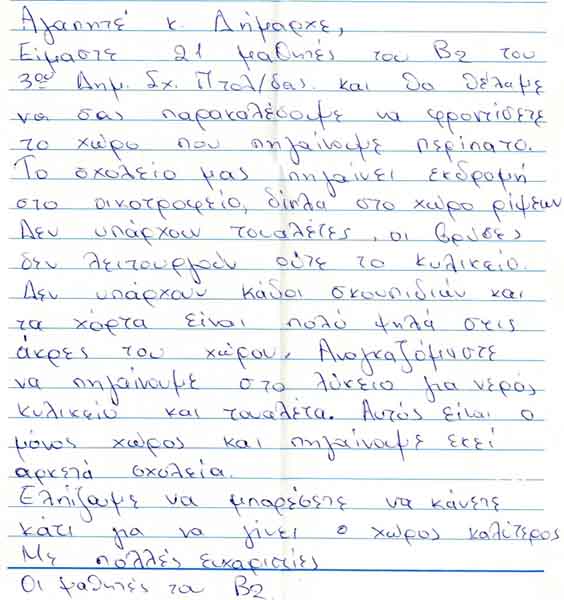 Αγαπητέ κ. Δήμαρχε,
Είμαστε 21 μαθητές του Β2 του
3ου Δημ. Σχ. Πτολ/δας. και θα θέλαμε
να σας παρακαλέσουμε να φροντίσετε
το χώρο που πηγαίνουμε περίπατο.
Το σχολείο μας πηγαίνει εκδρομή
στο οικοτροφείο, δίπλα στο χώρο ρίψεων
Δεν υπάρχουν τουαλέτες, οι βρύσες
δεν λειτουργούν ούτε το κυλικείο.
Δεν υπάρχουν κάδοι σκουπιδιών και
τα χόρτα είναι πολύ ψηλά στις
άκρες του χώρου. Αναγκαζόμαστε
να πηγαίνουμε στο λύκειο για νερό,
κυλικείο και τουαλέτα. Αυτός είναι ο
μόνος χώρος και πηγαίνουμε εκεί
αρκετά σχολεία.
Ελπίζουμε να μπορέσετε να κάνετε
κάτι για να γίνει ο χώρος καλίτερος
Με πολλές ευχαριστίες
Οι μαθητές του Β2